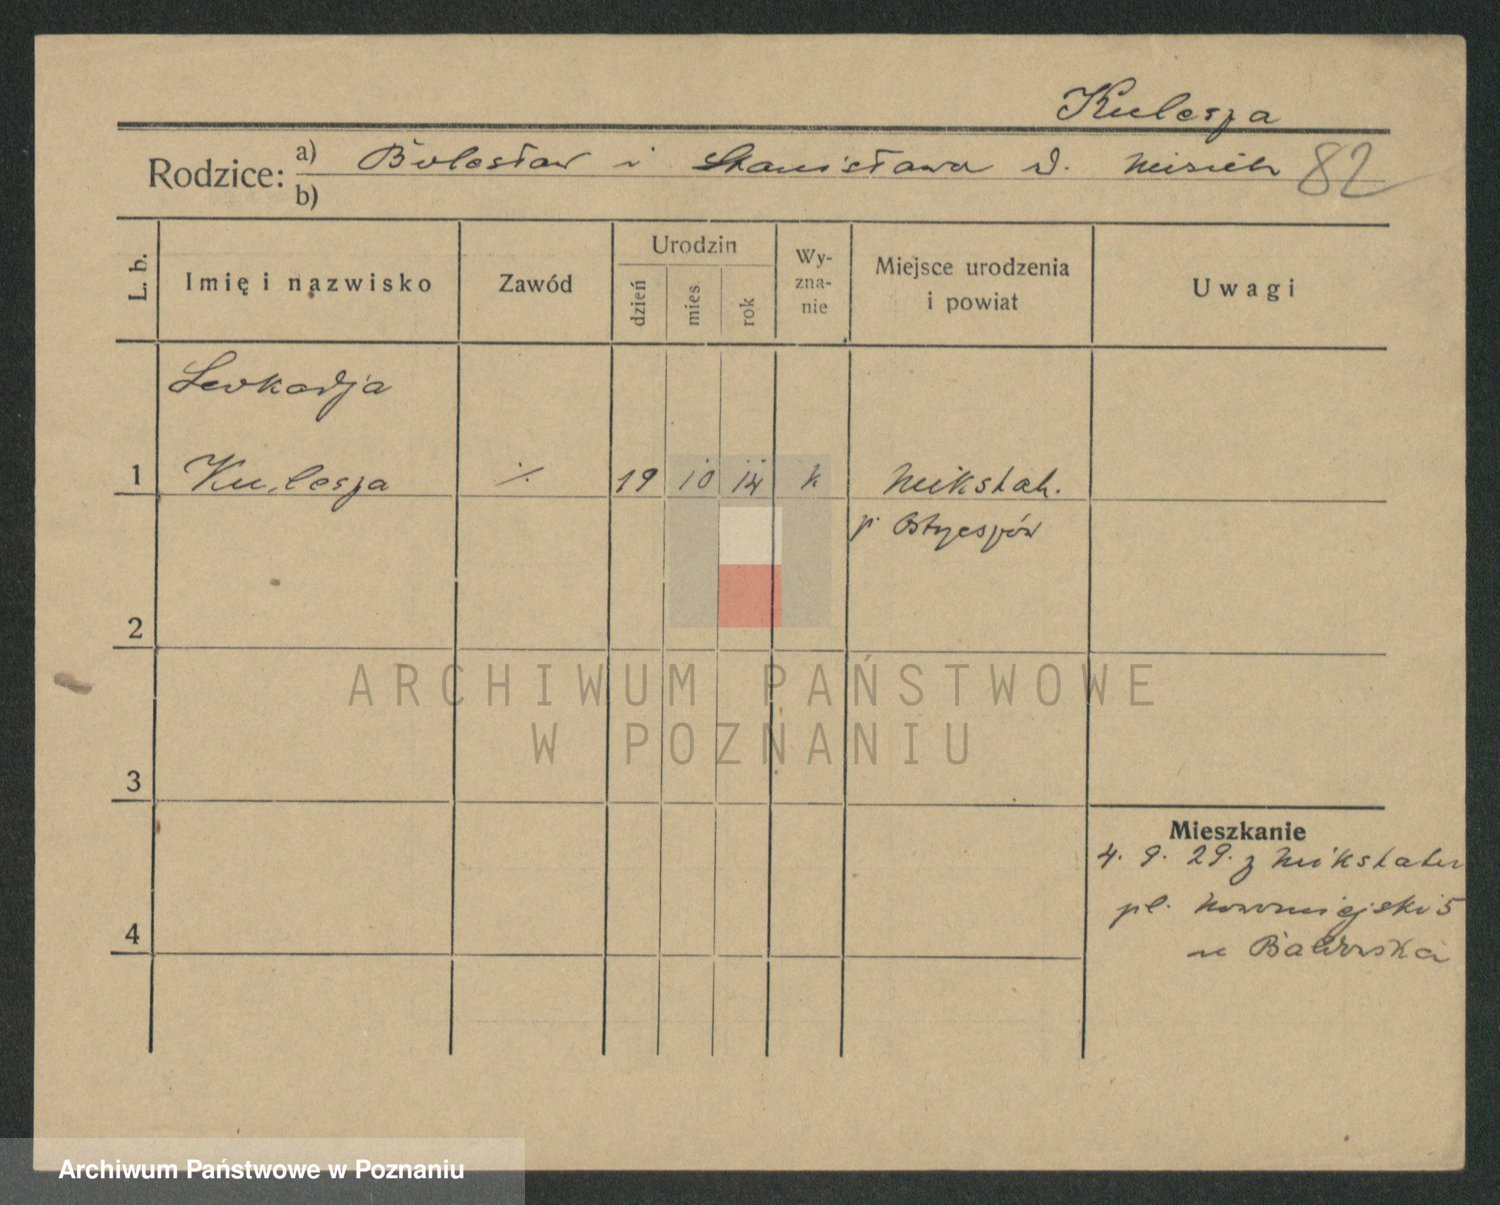 Kulesza
Rodzice: a) Bolesław i Stanisława d. 82
b)
L. b. Imię i nazwisko Zawód Urodzin dzień mies. rok Wy-zna-nie Miejsce urodzenia i powiat Uwagi
Leokadja
1 Kulesza ·/. 19 10 14 k Mikstat.
p. Ostrzeszów
2
ARCHIWUM PAŃSTWOWE
W POZNANIU
3
Mieszkanie
4. 9. 29. z Mikstatu
pl. Nowomiejski 5
4
Archiwum Państwowe w Poznaniu